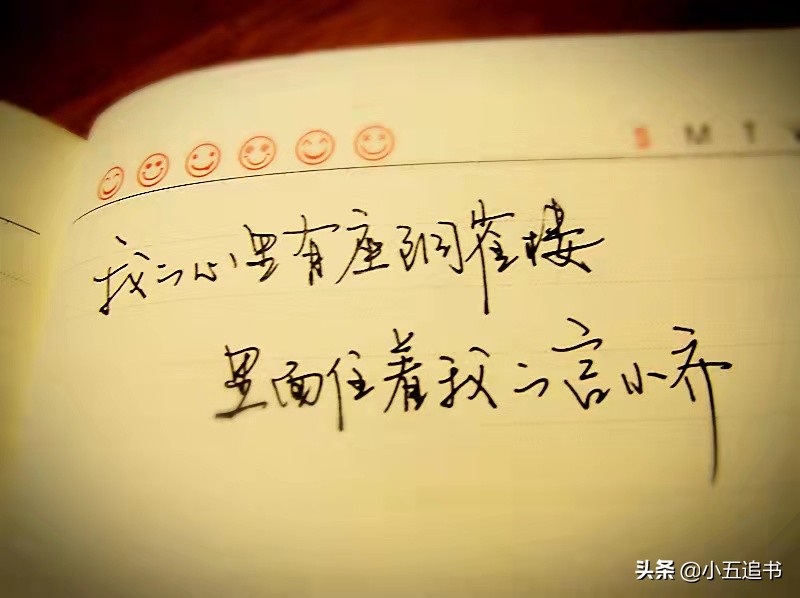 S M T
我的心里有座铜雀楼
里面住着我的宫小乔
头条 @小五追书